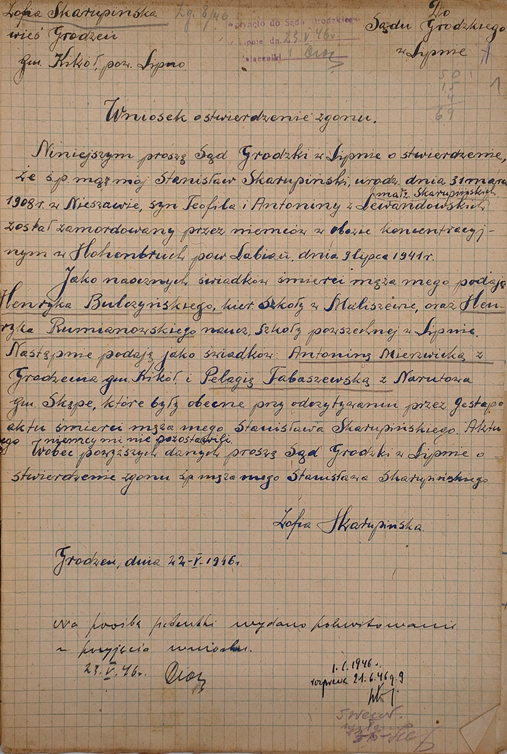 Zofia Skarupińska
wieś Grodzeń
gm Kikół, pow. Lipno
Zg. 8/46
Wpłynęło do Sądu Grodzkiego
w Lipnie da. 23.V.46 r.
Do
Sądu Grodzkiego
w Lipnie
Wniosek o stwierdzenie zgonu.
Niniejszym proszę Sąd Grodzki w Lipnie o stwierdzenie,
że śp mąż mój Stanisław Skarupiński, urodz. dnia 31 marca
1908 r. w Nieszawie, syn Teofila i Antoniny z Lewandowskich
małż. Skarupińskich
został zamordowany przez niemców w obozie koncentracyj-
nym w Hohenbruch pow Labiau, dnia 9 lipca 1941 r.
Jako naocznych świadków śmierci męża mego podaję
Henryka Bulczyńskiego, kier szkoły w Maliszewie, oraz Hen-
ryka Rumianowskiego naucz. szkoły powszechnej w Lipnie.
Następnie podaję jako świadków: Antoninę Mierzwicką z
Grodzenia gm Kikół i Pelagię Tabaszewską z Narutowa
gm Skępe, które były obecne przy odczytywaniu przez gestapo
aktu śmierci męża mego Stanisława Skarupińskiego. Aktu
niemcy mi nie pozostawili.
Wobec powyższych danych proszę Sąd Grodzki w Lipnie o
stwierdzenie zgonu śp męża mego Stanisława Skarupińskiego
Zofia Skarupińska
Grodzeń, dnia 22-V-1946 r.
Na prośbę petentki wydano pokwitowanie
z przyjęcia wniosku.
23.V.46 r.
1.6.1946 r.
rozprawa 21.6.46 g. 9